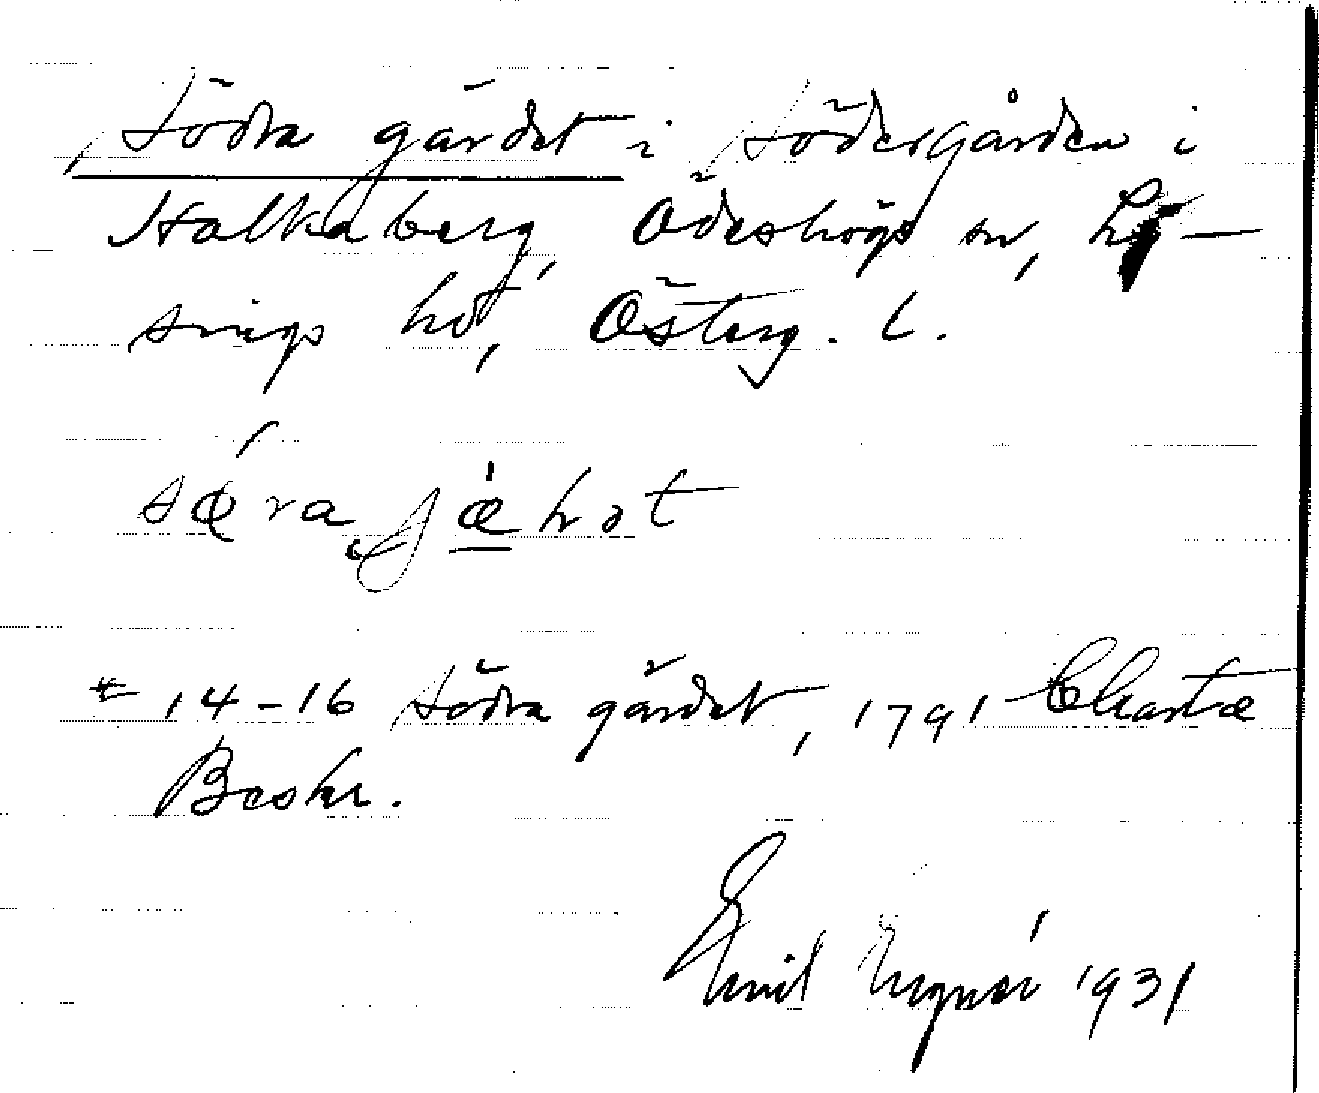 Södra gärdet i Södergården i
Holkaberg, Ödeshögs sn, Ly-
sings hd, Österg. l.
14-16 Södra gärdet, 1791 Charta
Beskr.
Emil 1931